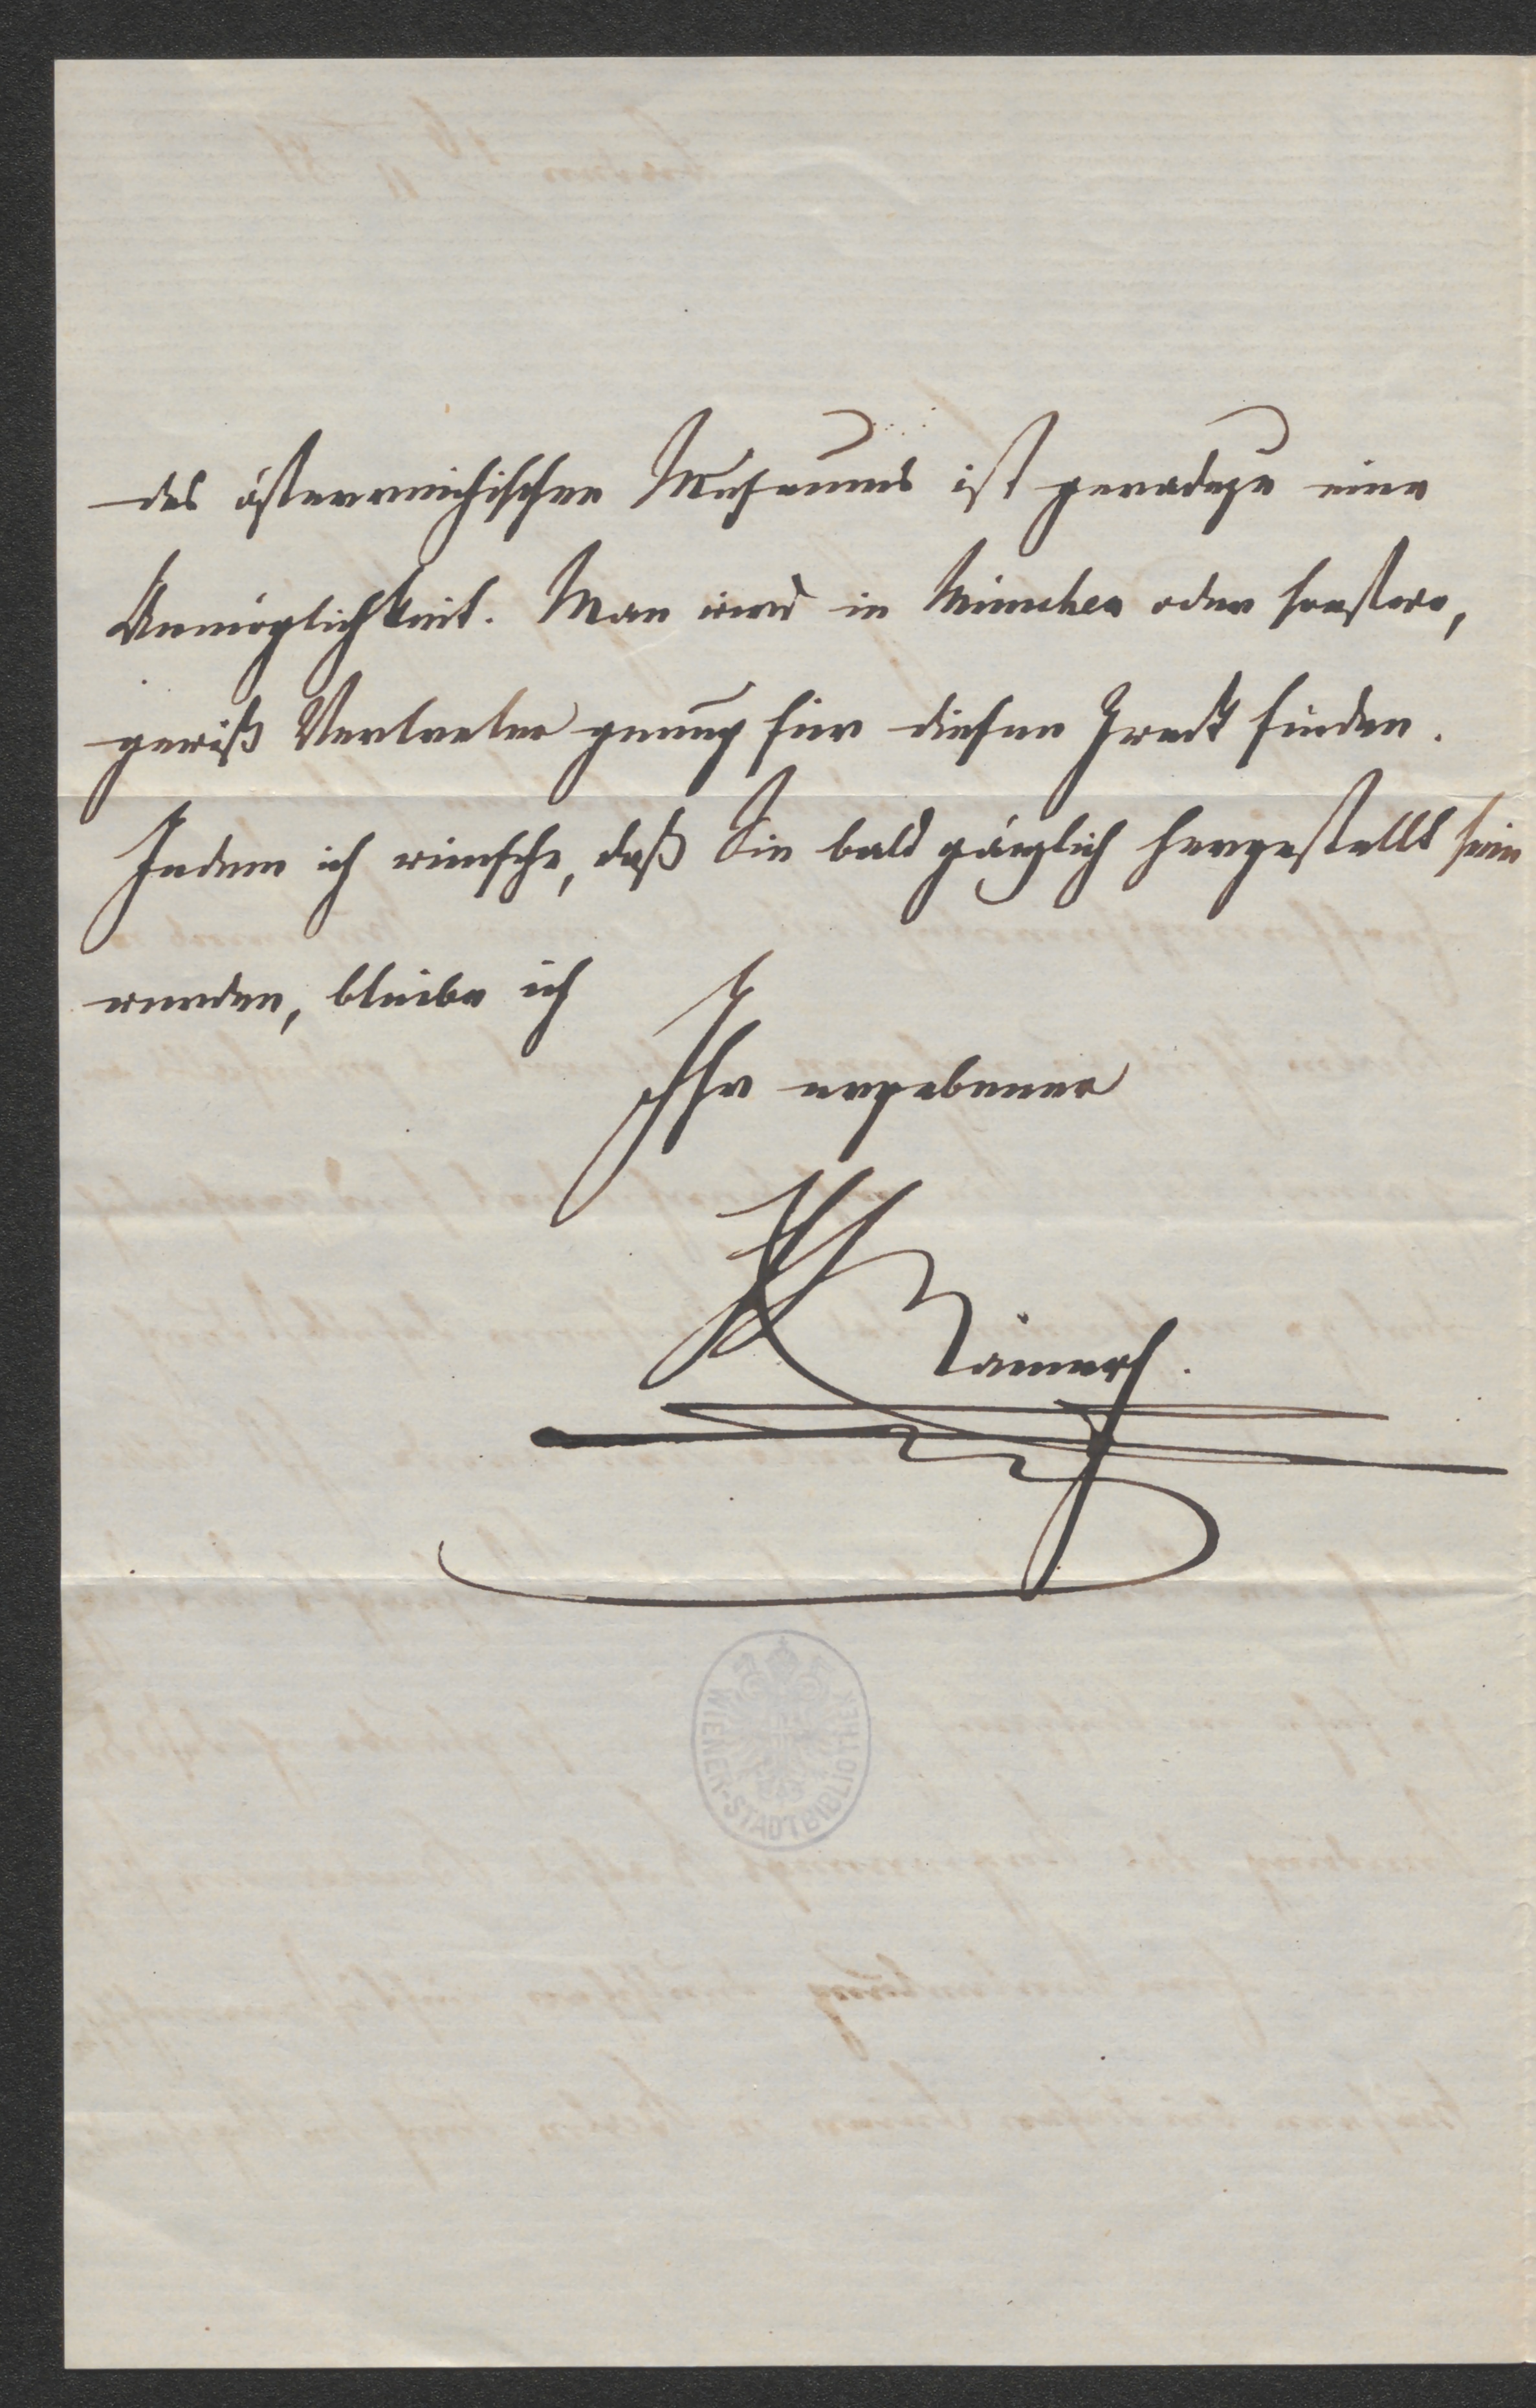 des österreichischen Museums ist geradezu eine
Unmöglichkeit. Man wird in München oder sonstwo,
gewiß Vertreter genug für diesen Zweck finden.
Indem ich wünsche, daß Sie bald gänzlich hergestellt sein
werden, bleibe ich
Ihr ergebener
WIENER-STADTBIBLIOTHEK